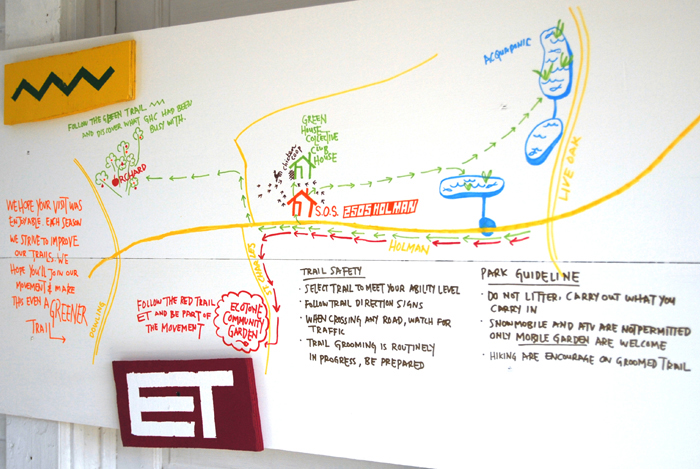 FOLLOW THE GREEN TRAIL
AND DISCOVER WHAT GHC HAD BEEN
BUSY WITH.
ORCHARD
GREEN
HOUSE
COLLECTIVE
CLUB
HOUSE
chicken
coop
S.O.S. 2505 HOLMAN
ACQUAPONIC
LIVE OAK
HOLMAN
ST CHARLES
DOWLING
WE HOPE YOUR VISIT WAS
ENJOYABLE. EACH SEASON
WE STRIVE TO IMPROVE
OUR TRAILS. WE
HOPE YOU'LL JOIN OUR
MOVEMENT & MAKE
THIS EVEN A GREENER
TRAIL
FOLLOW THE RED TRAIL
ET AND BE PART OF
THE MOVEMENT
ECOTONE
COMMUNITY
GARDEN
TRAIL SAFETY
· SELECT TRAIL TO MEET YOUR ABILITY LEVEL
· FOLLOW TRAIL DIRECTION SIGNS
· WHEN CROSSING ANY ROAD, WATCH FOR
TRAFFIC
· TRAIL GROOMING IS ROUTINELY
IN PROGRESS, BE PREPARED
PARK GUIDELINE
· DO NOT LITTER, CARRY OUT WHAT YOU
CARRY IN
· SNOWMOBILE AND ATV ARE NOT PERMITTED
ONLY MOBILE GARDEN ARE WELCOME
· HIKING ARE ENCOURAGE ON GROOMED TRAIL
ET